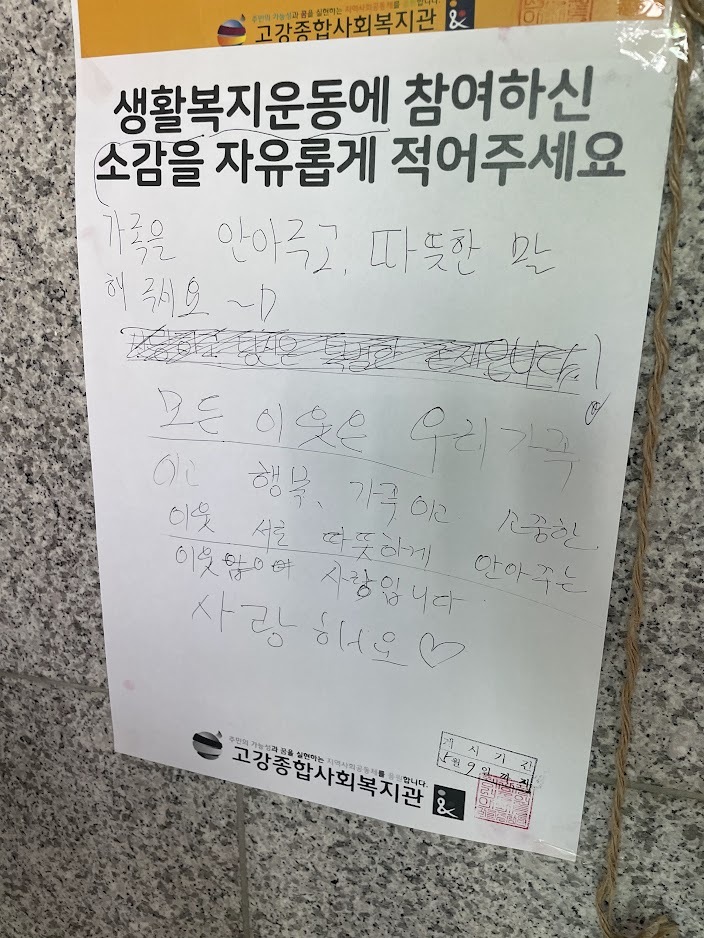 주민의 가능성과 꿈을 실현하는 지역사회공동체를 응원합니다.
고강종합사회복지관
생활복지운동에 참여하신
소감을 자유롭게 적어주세요
가족을 안아주고, 따뜻한 말
해 주세요 ~
당신은 특별한 존재입니다.
모든 이웃은 우리가족
이고 행복, 가족이고 소중한
이웃 서로 따뜻하게 안아주는
이웃 사랑입니다
사랑해요 ♡
주민의 가능성과 꿈을 실현하는 지역사회공동체를 응원합니다.
고강종합사회복지관
게시기간
5월 9일 까지